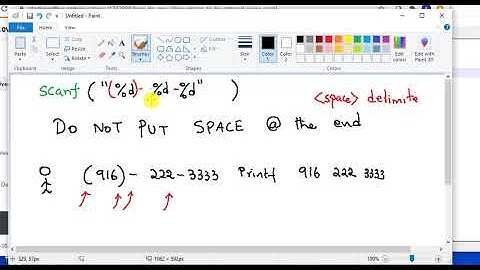 Untitled - Paint
File Home View
Paste
Select
Brushes
Shapes
Size
Color
1
Color
2
Edit
colors
Clipboard Image Tools Colors
scanf ( "(%d)- %d -%d" )
<space> delimite
DO NOT PUT SPACE @ the end
(916) - 222-3333 Printf 916 222 3333
329, 57px
1062 × 592px
100%